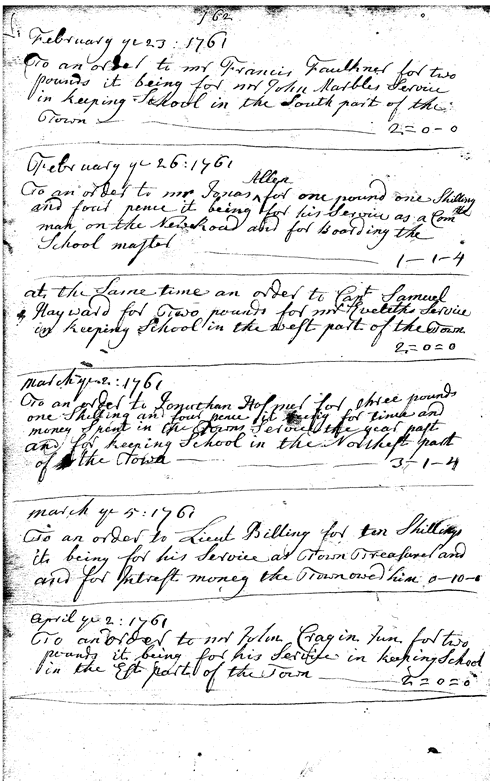 162
February ye 23: 1761
To an order to mr Francis Faulkner for two
pounds it being for mr John Marbles Service
in keeping School in the South part of the
Town 2=0-0
February ye 26: 1761
To an order to mr Jonas Allen for one pound one Shilling
and four pence it being for his Service as a Comtte
man on the New Road and for Boarding the
School master
1-1-4
at the Same time an order to Capt Samuel
Hayward for Two pounds for mr Eveleths Service
in keeping School in the west part of the Town
2=0=0
march ye 2: 1761
To an order to Jonathan Hosmer for three pounds
one Shilling and four pence it being for time and
money Spent in the Towns Service the year past
and for keeping School in the Northest part
of the Town 3-1-4
march ye 5: 1761
To an order to Lieut Billing for ten Shillings
its being for his Service as Town Treasurer and
and for Intrest money the Town owed him 0-10-0
April ye 2: 1761
To an order to mr John Cragin Jun for two
pounds it being for his Service in keeping School
in the Est part of the Town 2=0=0